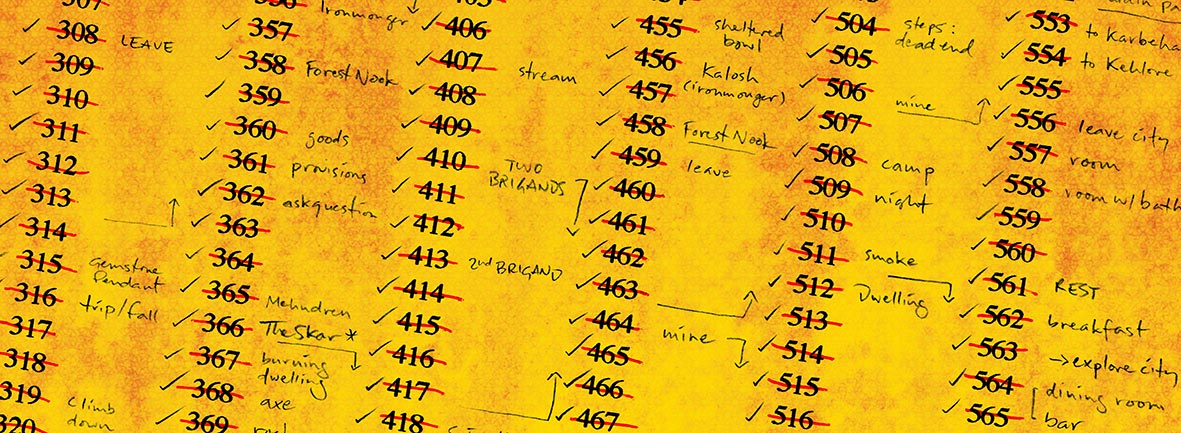 307
308 LEAVE
309
310
311
312
313
314
315 Gemstone
Pendant
316 trip/fall
317
318
319 climb
320 down
356 Ironmonger
357
358 Forest Nook
359
360 goods
361 provisions
362 ask question
363
364
365 Mehndren
366 The Skar *
367 burning
dwelling
368 axe
369
406
407 stream
408
409
410 TWO
BRIGANDS
411
412
413 2nd BRIGAND
414
415
416
417
418
455 sheltered
bowl
456 Kalosh
457 (ironmonger)
458 Forest Nook
459 leave
460
461
462
463
464 mine
465
466
467
504 steps:
dead end
505
506 mine
507
508 camp
509 night
510
511 smoke
512 Dwelling
513
514
515
516
553 to Karbeha
554 to Kehlore
555
556 leave city
557 room
558 room w/ bath
559
560
561 REST
562 breakfast
563 → explore city
564 dining room
565 bar